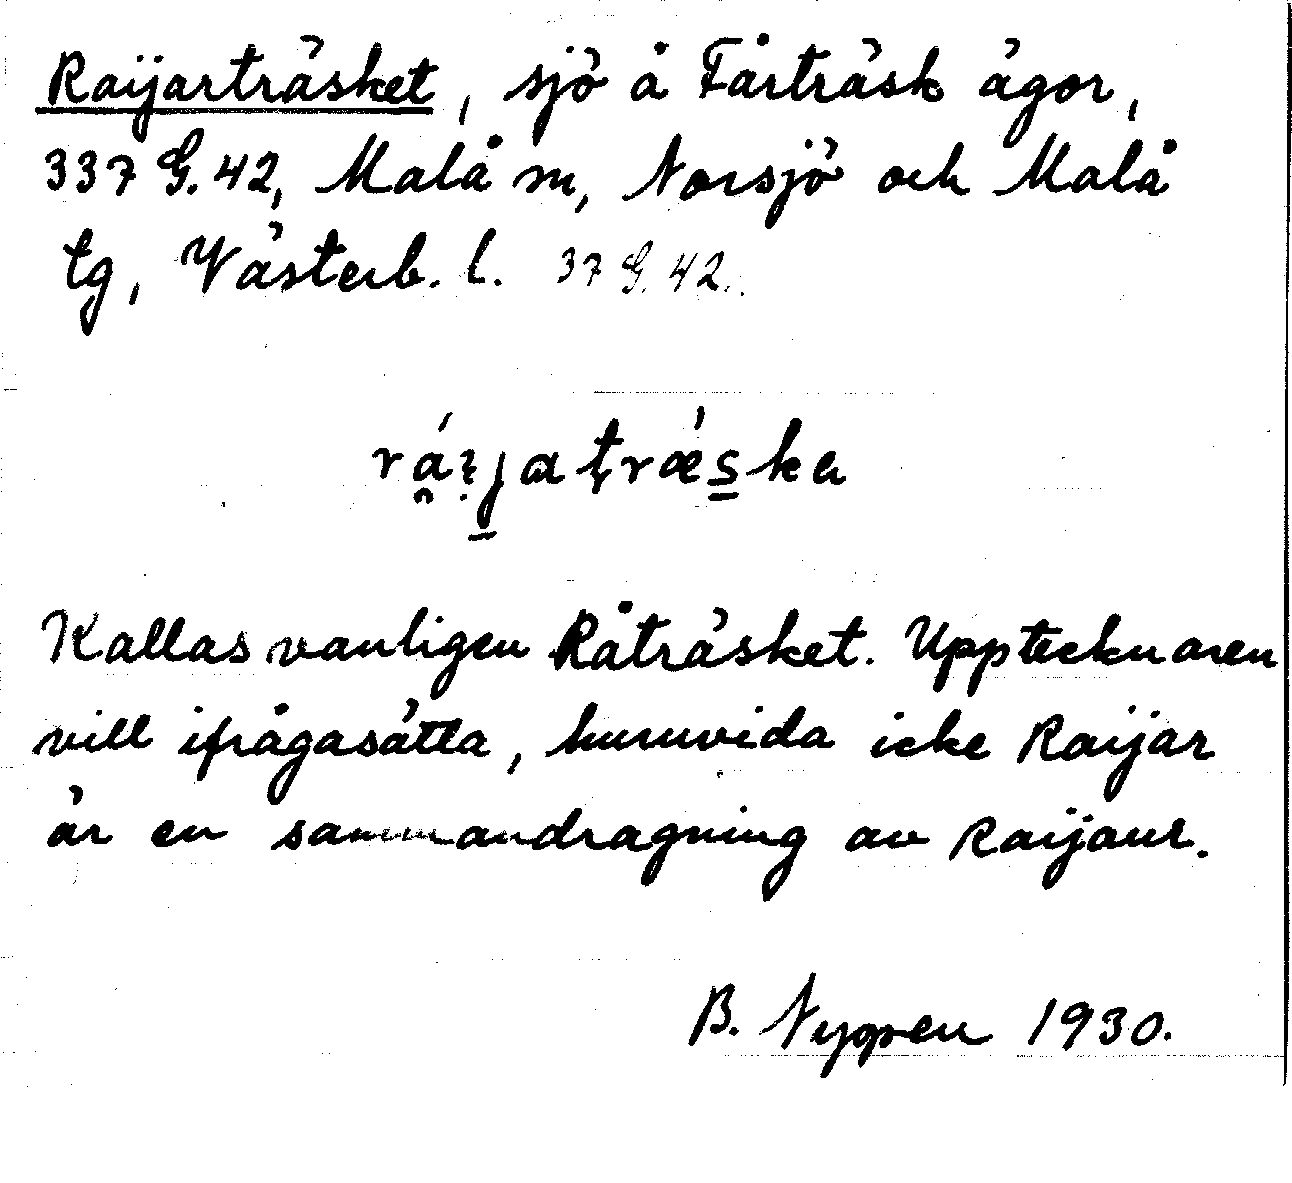 Raijarträsket, sjö å Fårträsk ägor,
337 G. 42, Malå sn, Norsjö och Malå
tg, Västerb. l. 37 G. 42.
Kallas vanligen Råträsket. Upptecknaren
vill ifrågasätta, huruvida icke Raijar
är en sammandragning av Raijaur.
B. Nygren 1930.